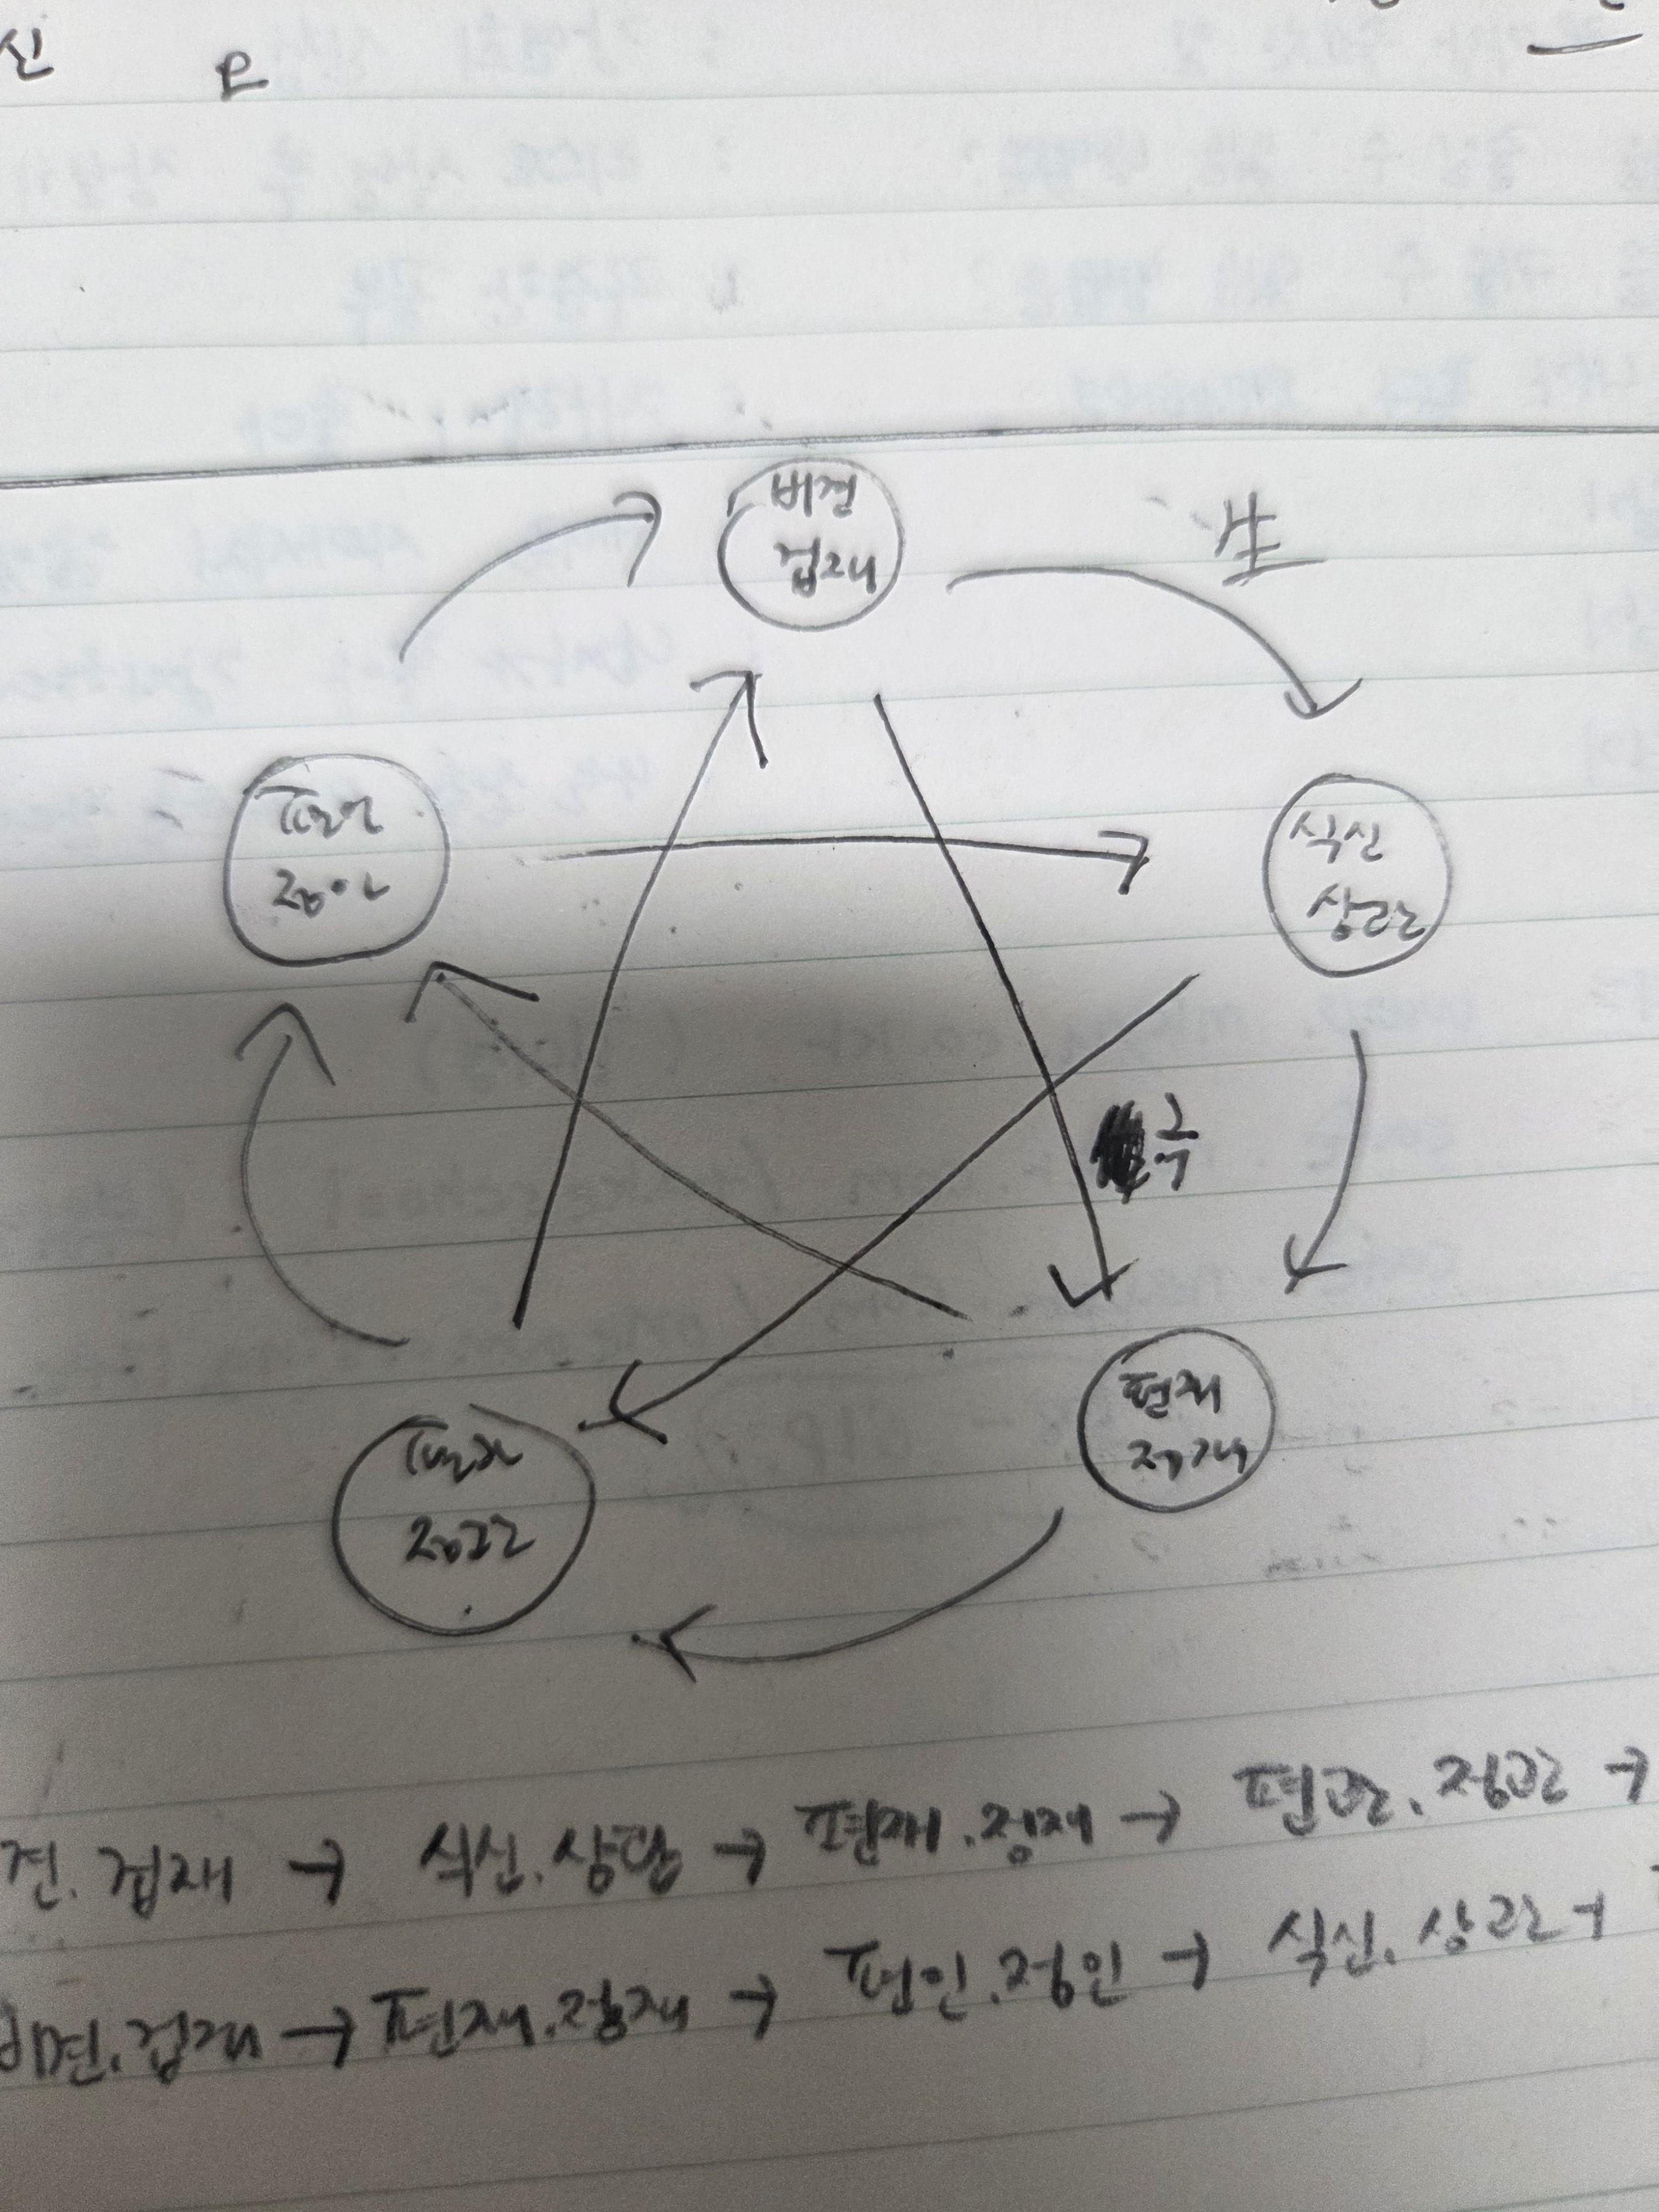 신 م
비견
겁재
生
편인
정인
식신
상관
극
편재
정재
편관
정관
견. 겁재 → 식신. 상관 → 편재. 정재 → 편관. 정관 →
비견. 겁재 → 편재. 정재 → 편인. 정인 → 식신. 상관 →